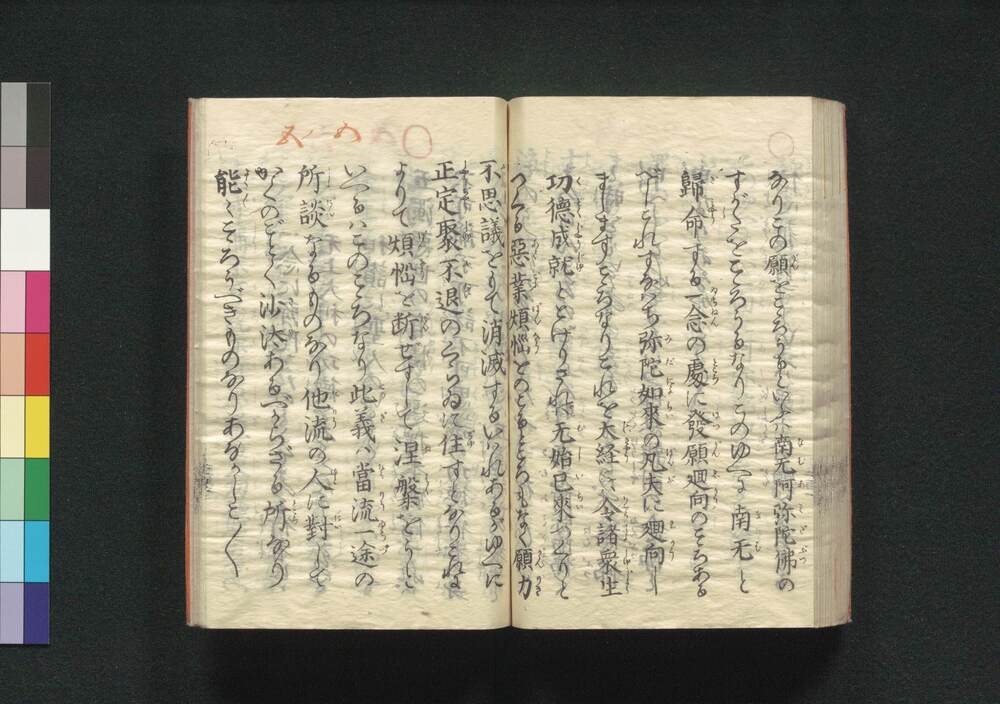 なりこの願をこゝろうるといふハ南无阿弥陀佛の
すがたをこゝろうるなりこのゆへに南无と
歸命する一念の處に發願廻向のこゝろある
べしこれすなハち弥陀如來の凡夫に廻向し
ましますこゝろなりこれを大経にハ令諸衆生
功徳成就ととけりされハ无始已來つくりと
つくる惡業煩惱をのこるところもなく願力
不思議をもて消滅するいはれあるがゆへに
正定聚不退のくらゐに住すとなりこれに
よりて煩惱を断せすして涅槃をうと
いへるハこのこゝろなり此義ハ當流一途の
所談なるものなり他流の人に對して
かくのごとく沙汰あるべからざる所なり
能〻こゝろうべきものなりあなかしこ〳〵